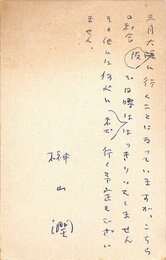 三月大阪に行くことになっていますが、こちら
の都合では時ははっきりいたしません
その他には何処へも 行く予定もござい
ません。
神山
(潤)